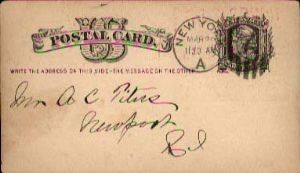 POSTAL CARD.
NEW YORK
MAR
1130 AM
A
WRITE THE ADDRESS ON THIS SIDE - THE MESSAGE ON THE OTHER
A C Peters
Newport
R I